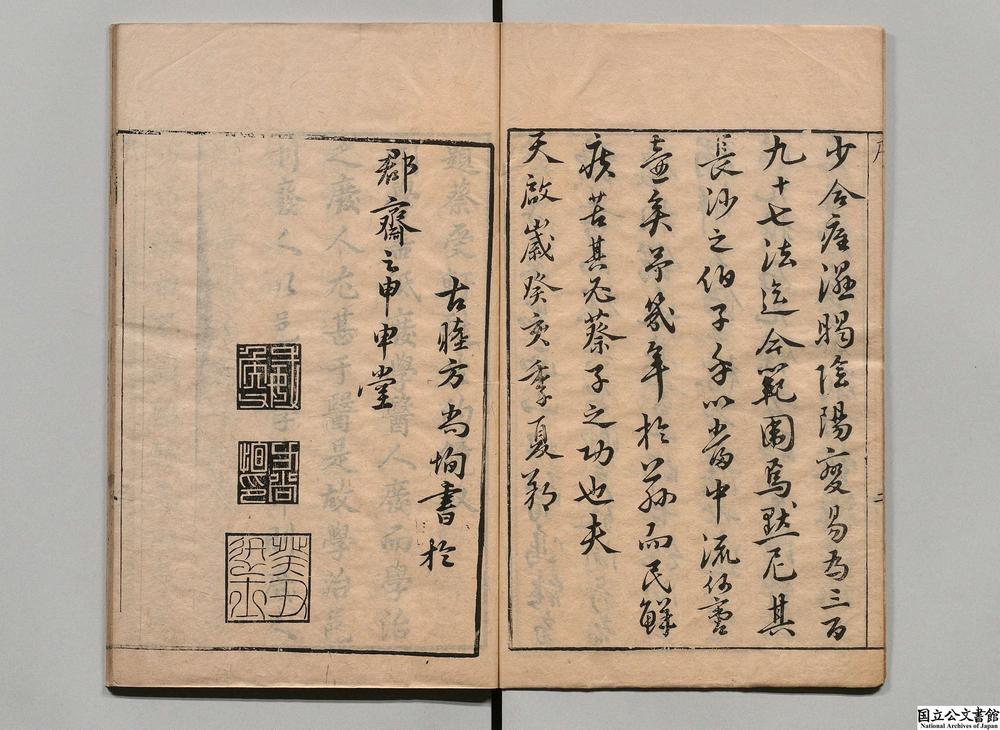 少合痙濕暍陰陽變易為三百
九十七法迄今範圍焉默尼其
長沙之伯子乎以當中流
壺矣予幾年於蘇而民鮮
疾苦其亦蔡子之功也夫
天啟歲癸亥季夏
古睦方尚恂書於
郡齋之申申堂
国立公文書館
National Archives of Japan